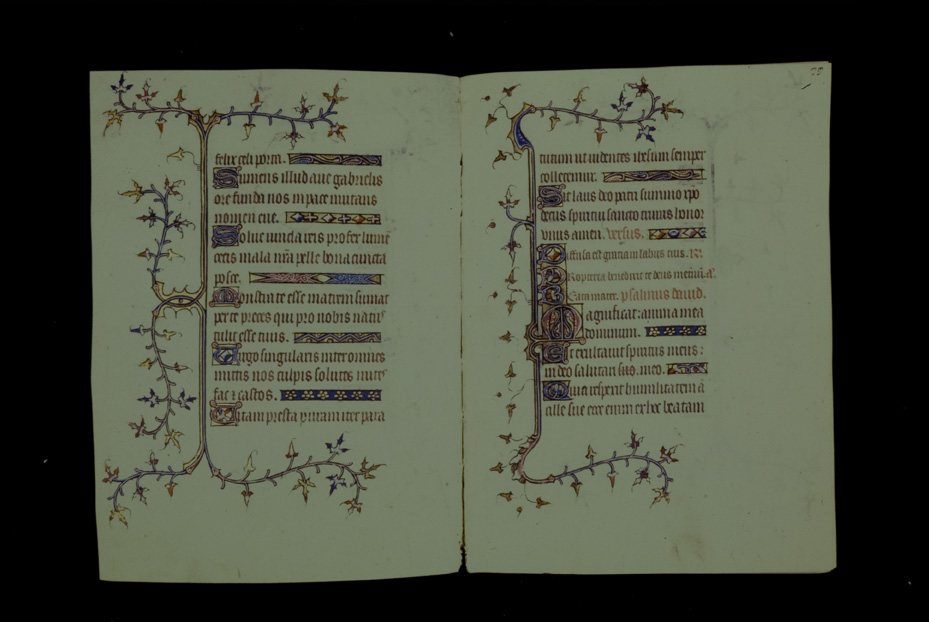 felix celi porta.
Sumens illud aue gabrielis
ore funda nos in pace mutans
nomen eue.
Solue uincla reis profer lumē
cecis mala nr̄a pelle bona cuncta
posce.
Monstra te esse matrem sumat
per te preces qui pro nobis natus
tulit esse tuus.
Uirgo singularis inter omnes
mitis nos culpis solutos mites
fac ⁊ castos.
Uitam presta puram iter para
tutum ut uidentes ihesum semper
colletemur.
Sit laus deo patri summo xp̄o
decus spiritui sancto trinus honor
vnus amen. versus.
Diffusa est gratia in labiis tuis. R.
Propterea benedixit te deus in eternū. aͣ.
Beata mater. psalmus dauid.
Magnificat: anima mea
dominum.
Et exultauit spiritus meus:
in deo salutari suo. meo.
Quia respexit humilitatem ā
cille sue ecce enim ex hoc beatam